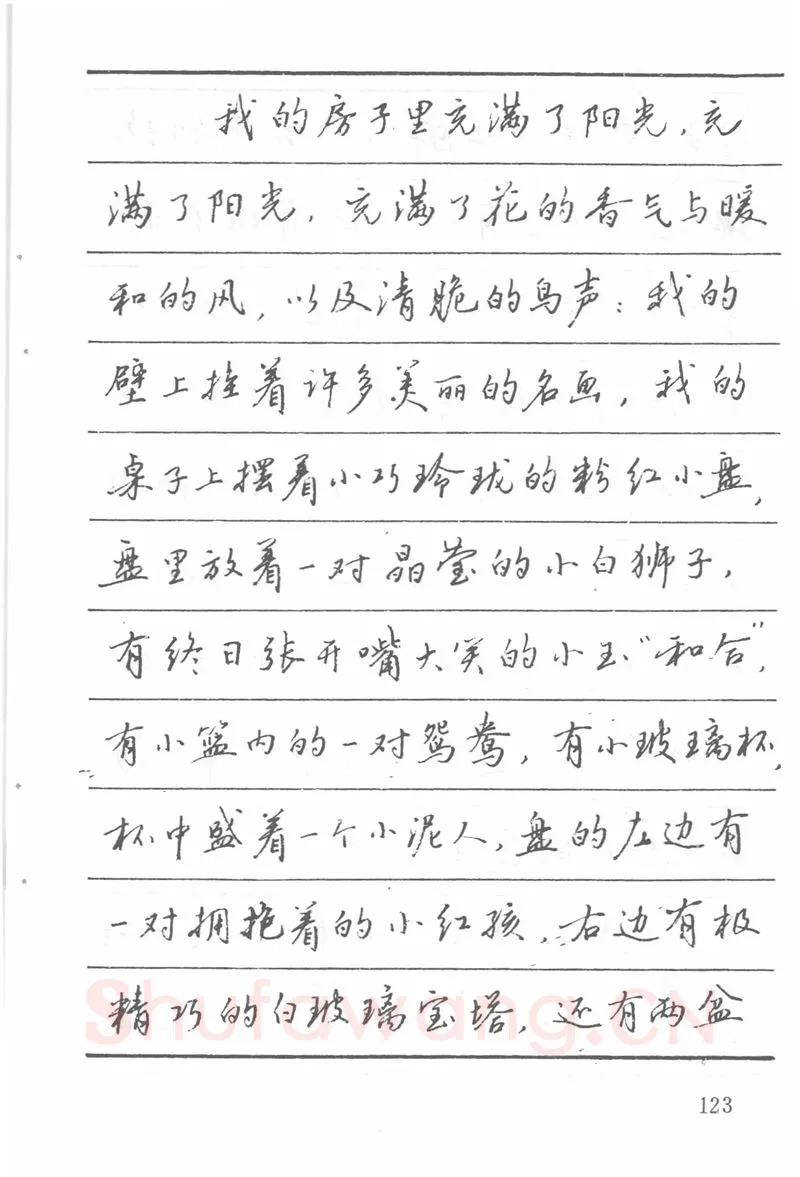 我的房子里充满了阳光,充
满了阳光,充满了花的香气与暖
和的风,以及清脆的鸟声;我的
壁上挂着许多美丽的名画,我的
桌子上摆着小巧玲珑的粉红小盘,
盘里放着一对晶莹的小白狮子,
有终日张开嘴大笑的小玉“和合”,
有小篮内的一对鸳鸯,有小玻璃杯,
杯中盛着一个小泥人,盘的左边有
一对拥抱着的小红孩,右边有极
精巧的白玻璃宝塔,还有两盆
Shufawang.CN
123